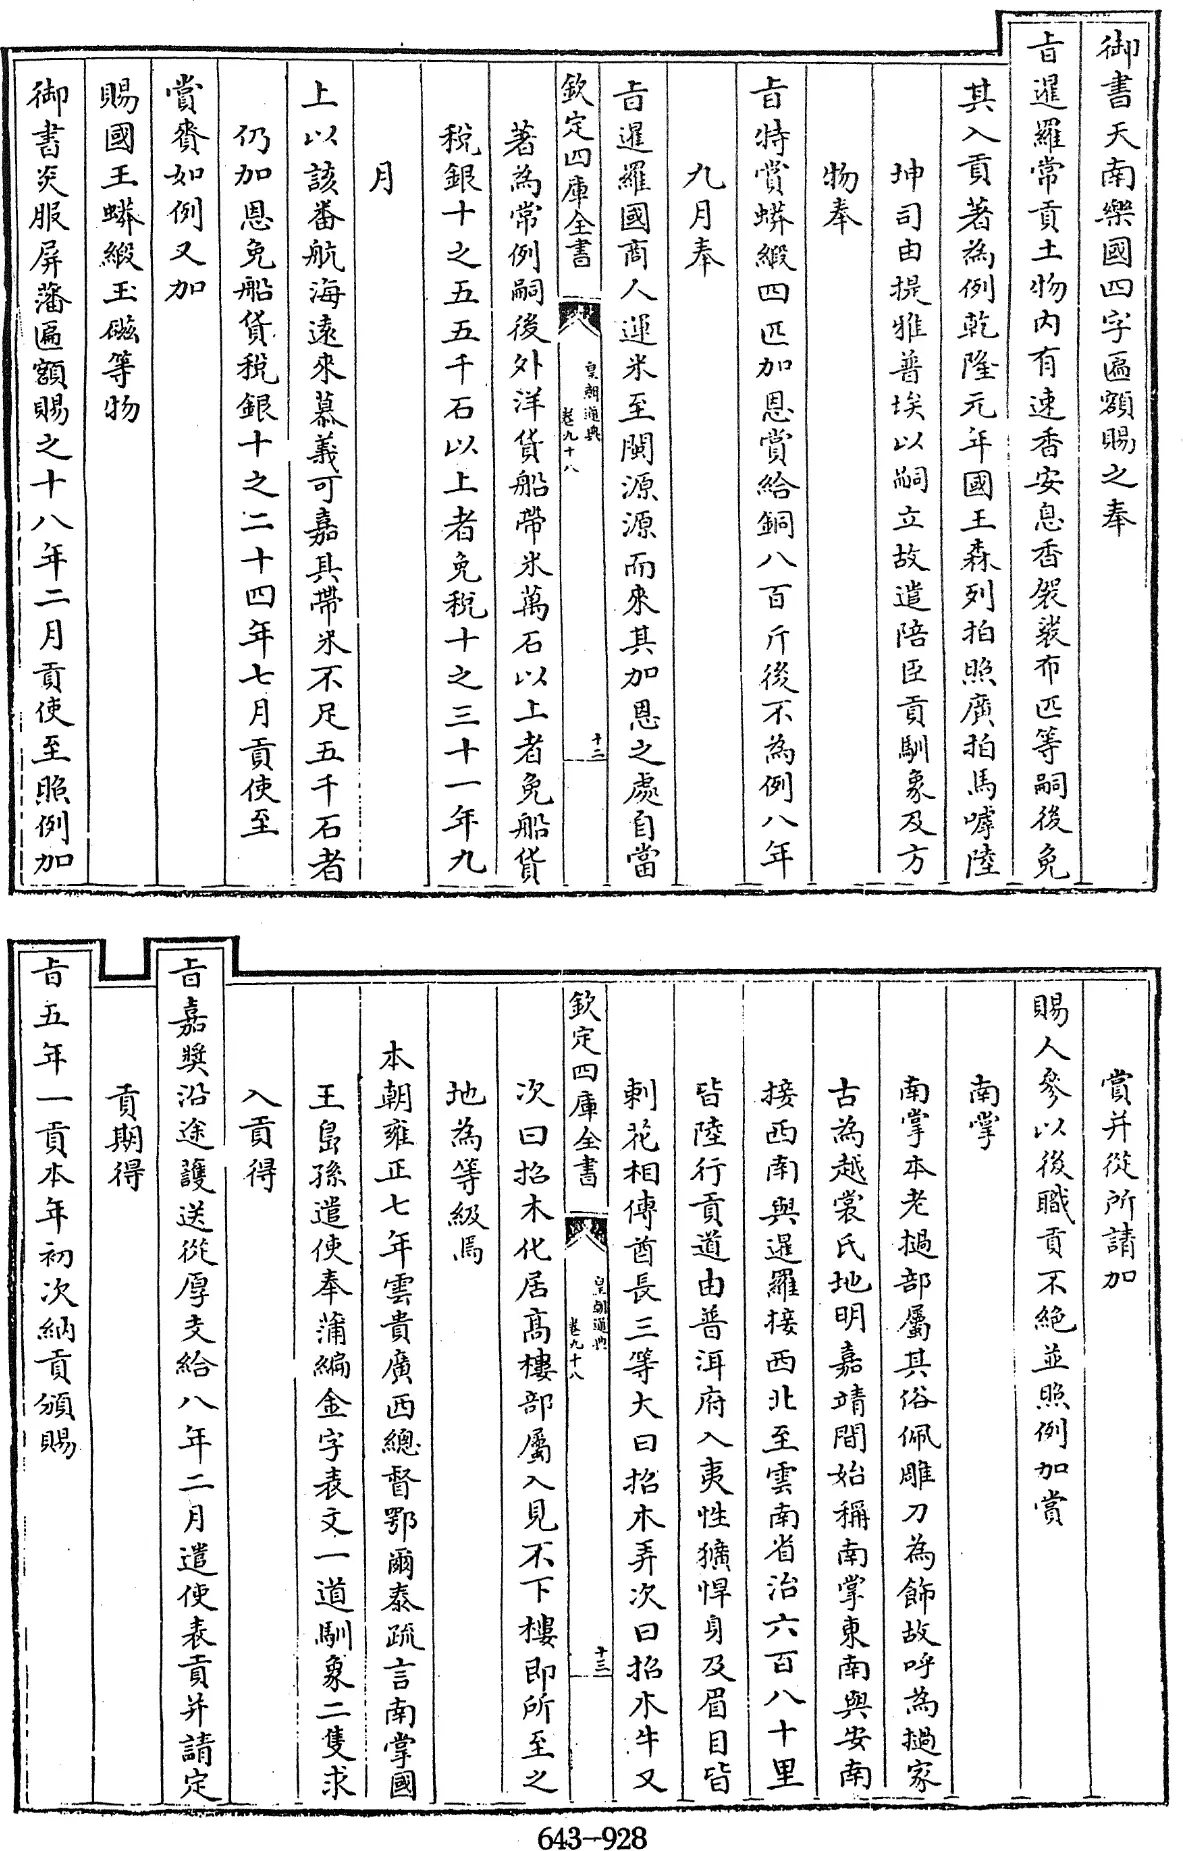 御書天南樂國四字匾額賜之奉
旨暹羅常貢土物内有速香安息香袈裟布匹等嗣後免
其入貢著為例乾隆元年國王森列拍照廣拍馬嘑陸
坤司由提雅普埃以嗣立故遣陪臣貢馴象及方
物奉
旨特賞蟒緞四匹加恩賞給銅八百斤後不為例八年
九月奉
旨暹羅國商人運米至閩源源而來其加恩之處自當
欽定四庫全書
皇朝通典
卷九十八
十二
著為常例嗣後外洋貨船帶米萬石以上者免船貨
稅銀十之五五千石以上者免稅十之三十一年九
月
上以該番航海遠來慕義可嘉其帶米不足五千石者
仍加恩免船貨稅銀十之二十四年七月貢使至
賞賚如例又加
賜國王蟒緞玉磁等物
御書炎服屏藩匾額賜之十八年二月貢使至照例加
賞并從所請加
賜人參以後職貢不絕並照例加賞
南掌
南掌本老撾部屬其俗佩雕刀為飾故呼為撾家
古為越裳氏地明嘉靖間始稱南掌東南與安南
接西南與暹羅接西北至雲南省治六百八十里
皆陸行貢道由普洱府入夷性獷悍身及眉目皆
刺花相傳酋長三等大曰招木弄次曰招木牛又
欽定四庫全書
皇朝通典
卷九十八
十三
次曰招木化居高樓部屬入見不下樓即所至之
地為等級焉
本朝雍正七年雲貴廣西總督鄂爾泰疏言南掌國
王島孫遣使奉蒲編金字表文一道馴象二隻求
入貢得
旨嘉獎沿途護送從厚支給八年二月遣使表貢并請定
貢期得
旨五年一貢本年初次納貢頒賜
643-928